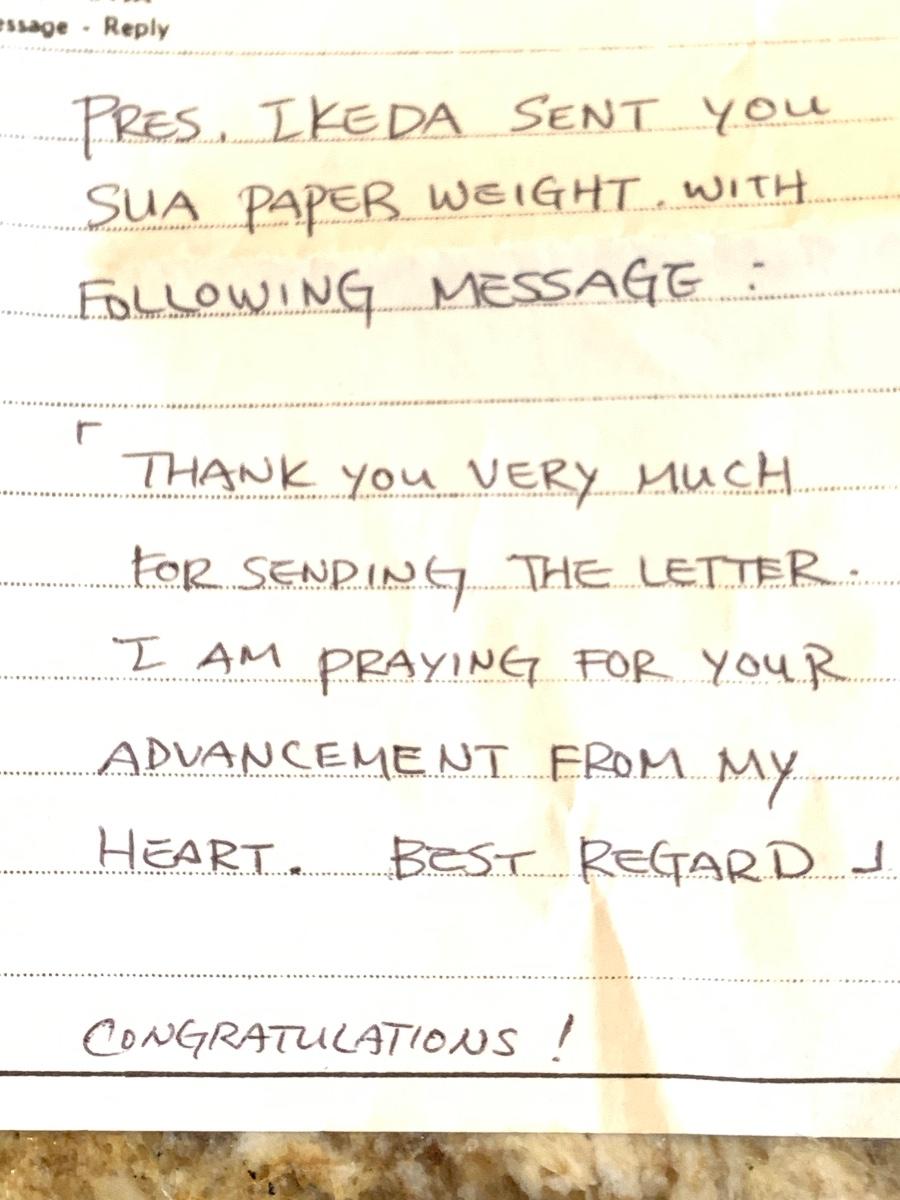 essage - Reply
PRES. IKEDA SENT YOU
SUA PAPER WEIGHT. WITH
FOLLOWING MESSAGE :
「
THANK YOU VERY MUCH
FOR SENDING THE LETTER.
I AM PRAYING FOR YOUR
ADVANCEMENT FROM MY
HEART. BEST REGARD 」
CONGRATULATIONS !